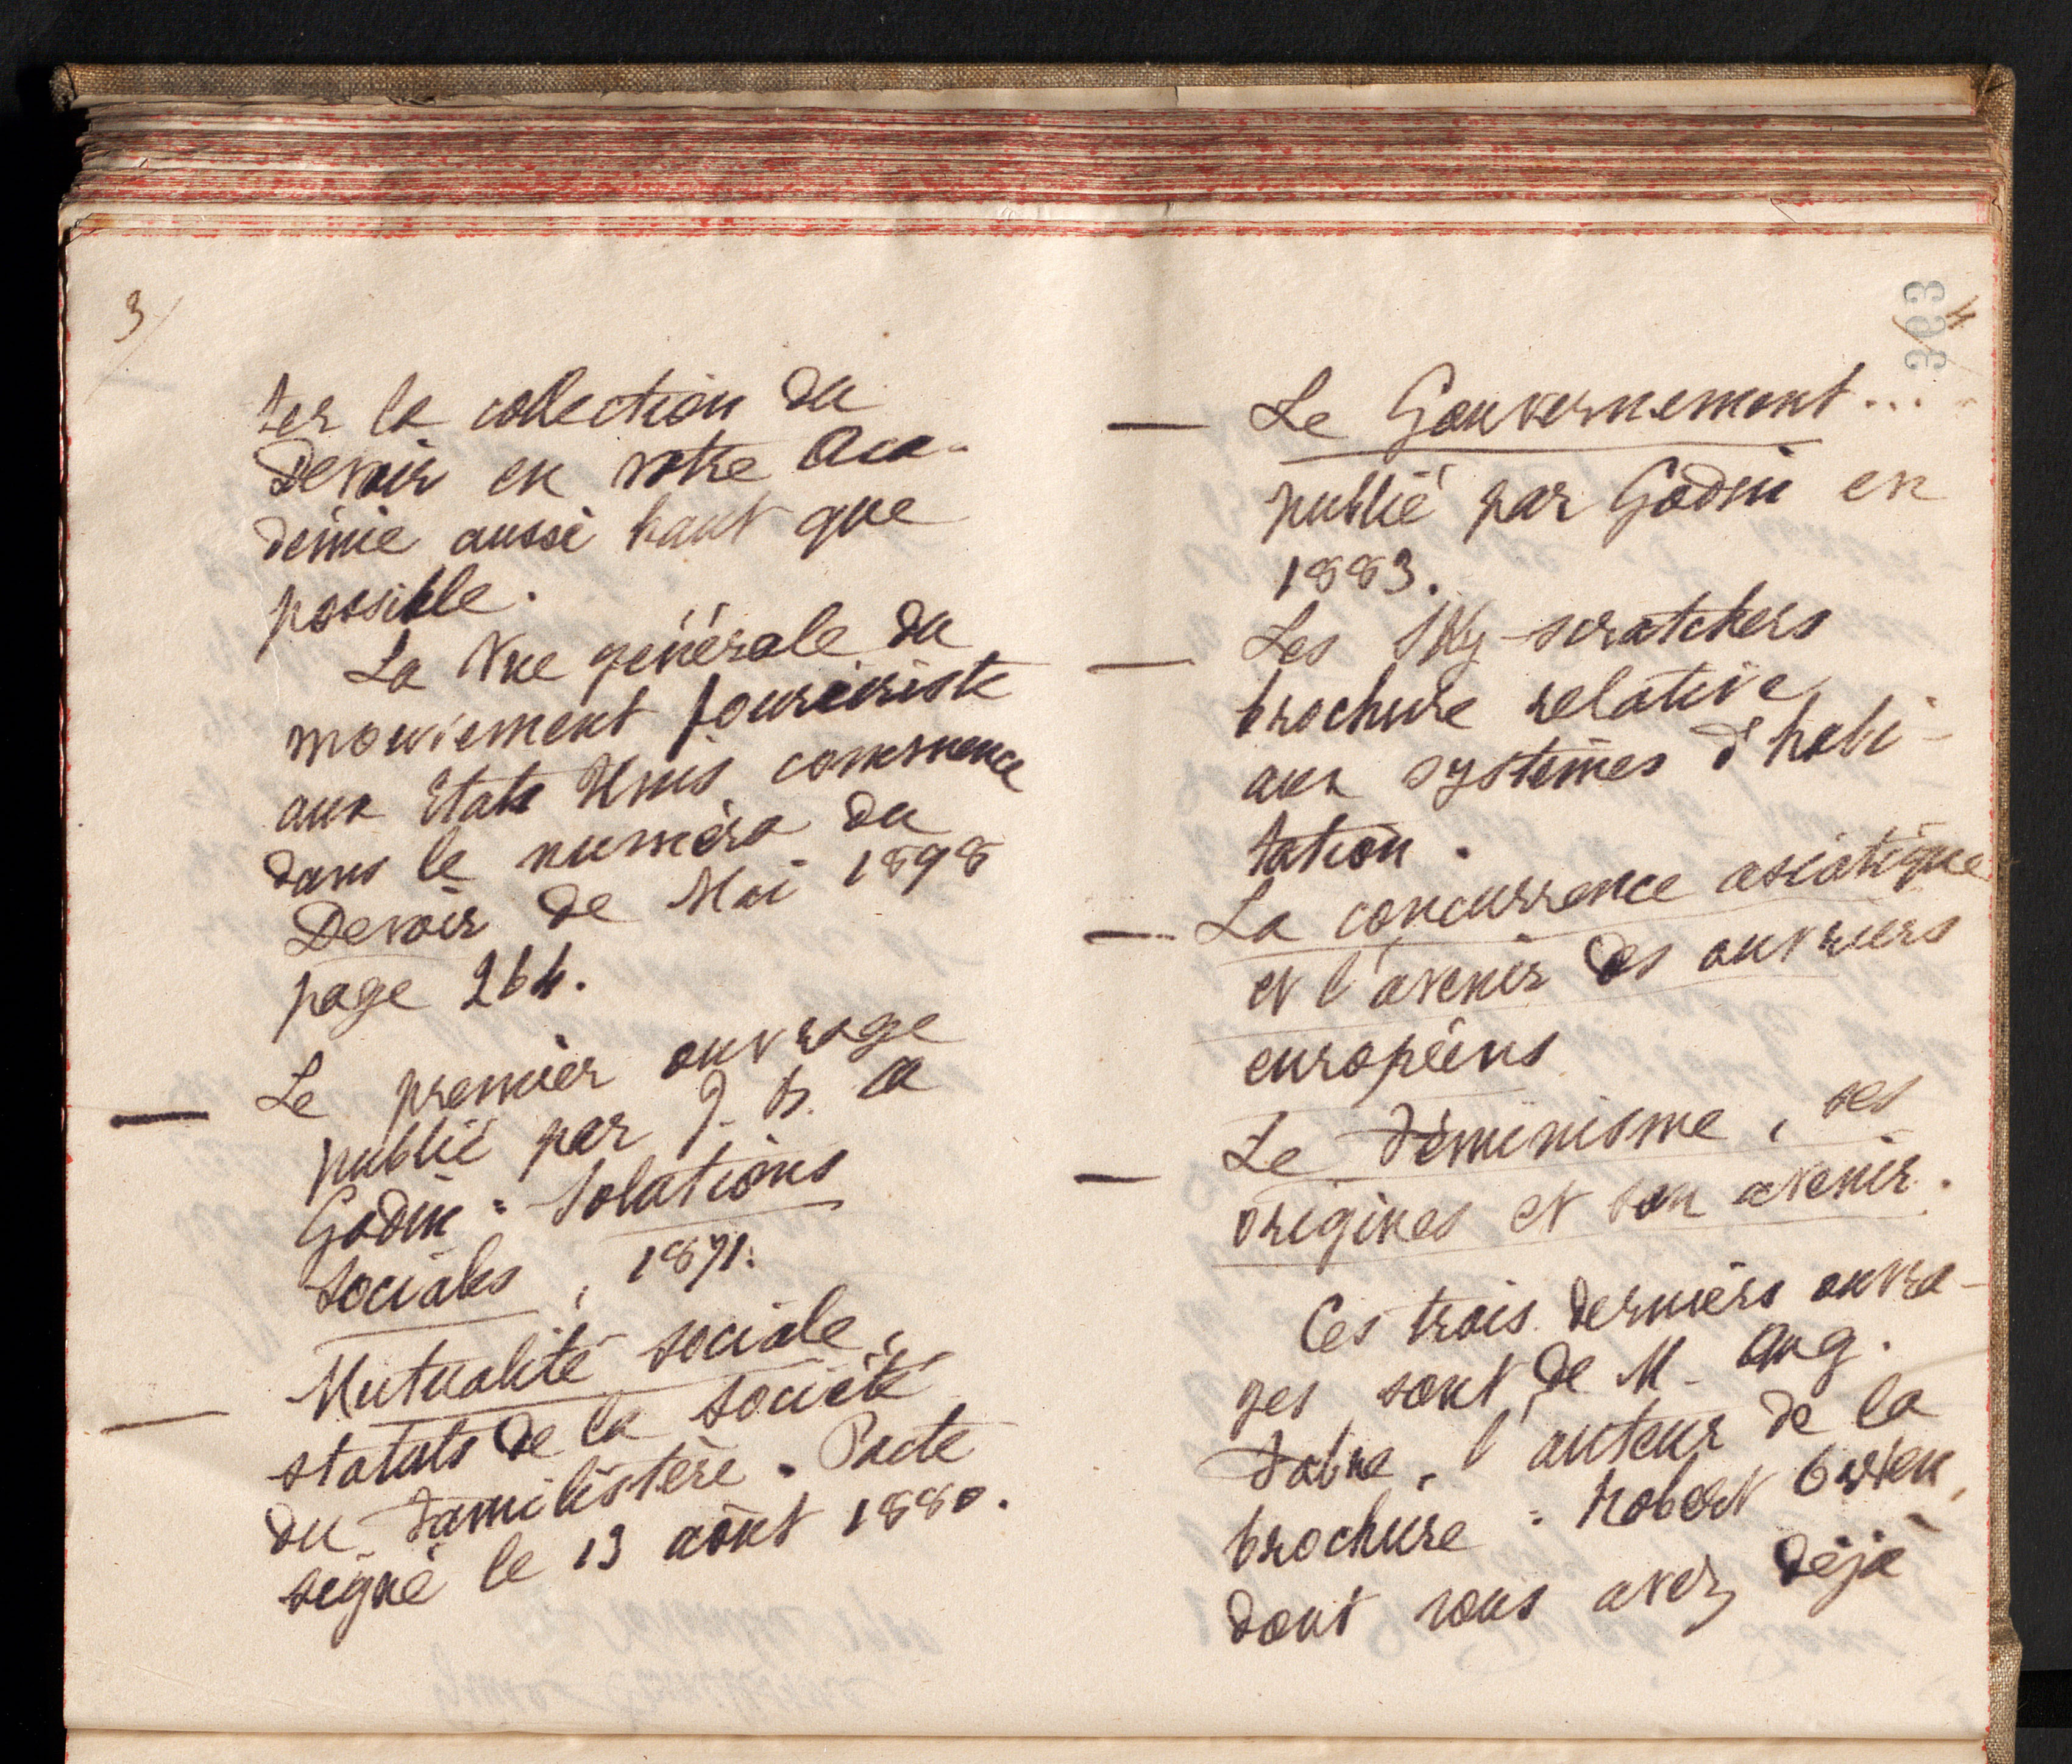 3/
ter la collection du
Devoir en votre Aca-
démie aussi haut que
possible.
La Vue générale du
mouvement fouriériste
aux Etats Unis commence
dans le numéro du
Devoir de Mai 1898
page 264.
— Le premier ouvrage
publié par J. B. A
Godin : Solutions
Sociales, 1871.
— Mutualité sociale,
statuts de la société
du Familistère. Pacte
signé le 13 août 1880.
363
4/
— Le Gouvernement...
publié par Godin en
1883.
— Les Sky-scratchers
brochure relative
aux systèmes d'habi-
tation.
— La concurrence asiatique
et l'avenir des ouvriers
européens
— Le Féminisme, ses
origines et son avenir.
Ces trois derniers ouvra-
ges sont de M. Aug.
Fabre, l'auteur de la
brochure : Robert Owen,
dont vous avez déjà